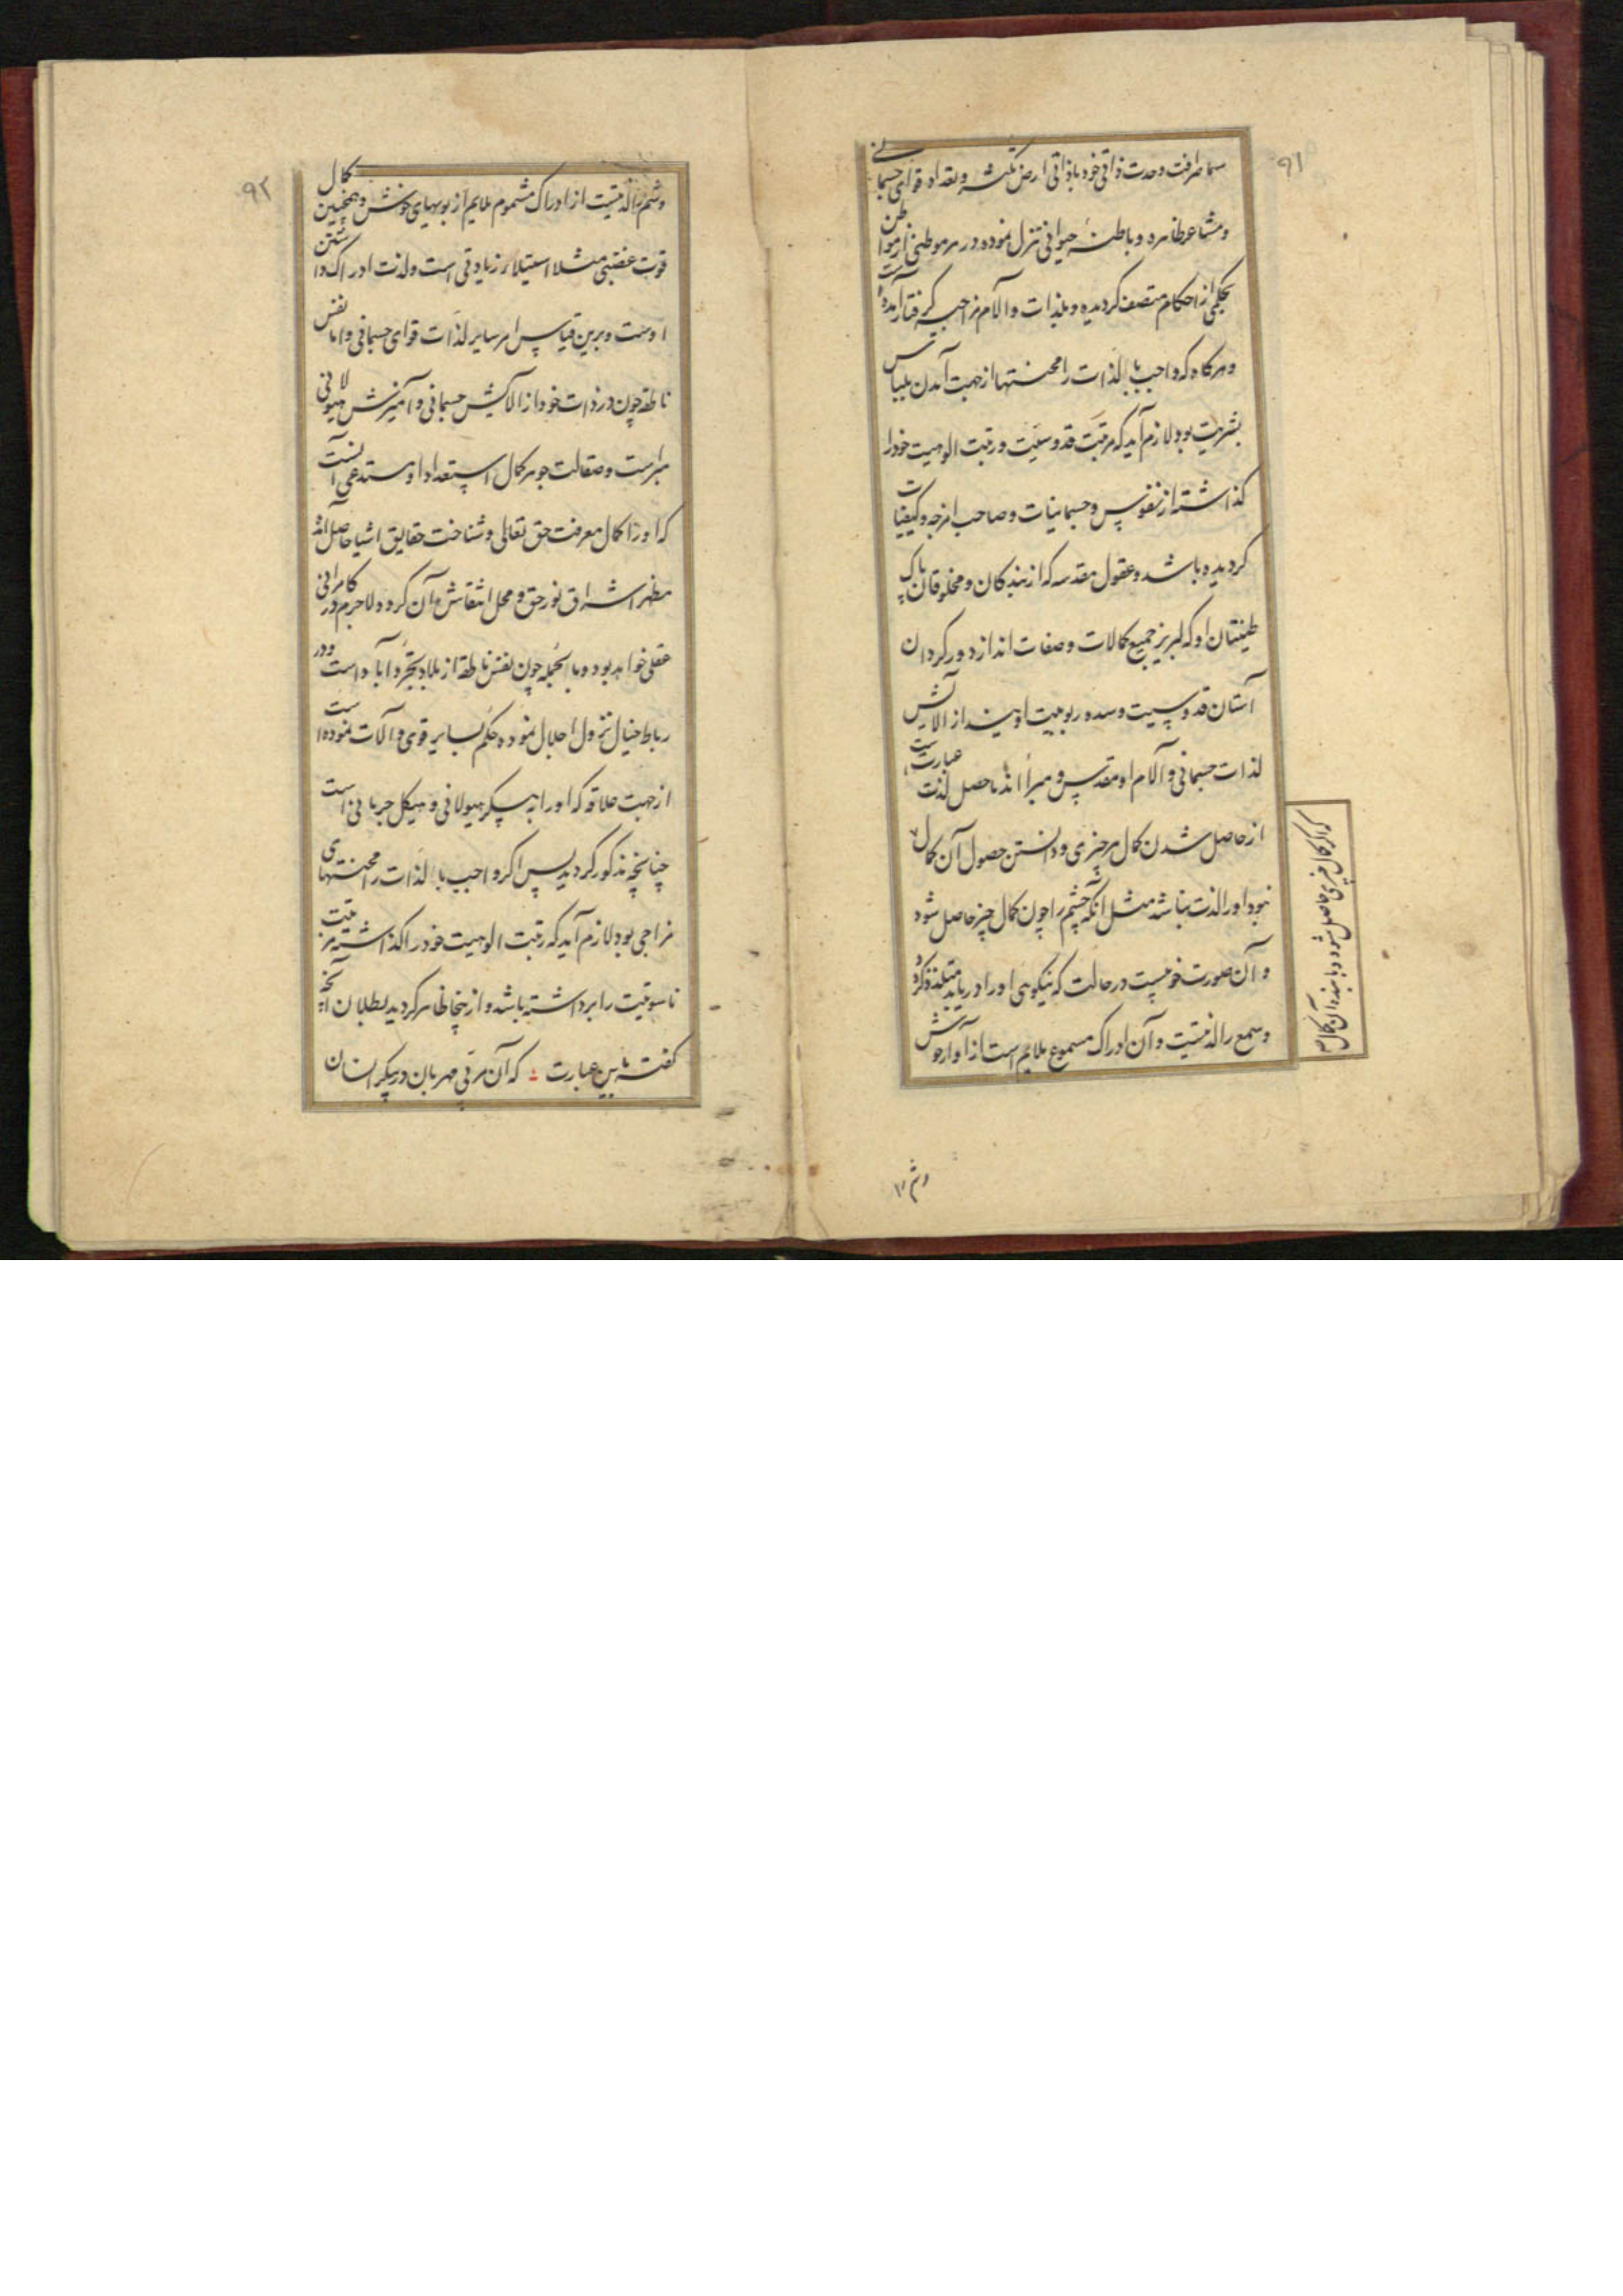 ۹۱
سما صرافت وحدت ذاتی خود با ذاتی ارض نکشه و بعداد قوای جسمانی
و مشاعر ظاهره و باطنهٔ حیوانی تنزل نموده در هر موطنی از مواطن
بحکمی از احکام متصف کردیده و بلذات و آلام مزاجیه کرفتار آمده است
و هرکاه که واجب بالذات را محنتها از جهت آمدن بلباس
بشریت بود لازم آید که مرتبت قدوسیت و رتبت الوهیت خود را
کذاشته از نفوس و جسمانیات و صاحب امزجه و کیفیات
کردیده باشد و عقول مقدسه که از بندکان و مخلوقان پاک
طینتان او که لبریز جمیع کمالات و صفات اند از دور کردان
آستان قدوسیت و سده ربوبیت اویند از الایش
لذات جسمانی و آلام او مقدس و مبرا اند ما حصل لذت عبارتست
از حاصل شدن کمال هر چیزی و دانستن حصول آن کمال
نبود او را لذت نباشد مثل آنکه چشم را چون کمال چیز حاصل شود
و آن صورت خوبیست در حالت که نیکویی او را دریابد متلذذ کردد
و سمع را لذتیست و آن ادراک مسموع ملایم است از آواز خوش
که اگر کمال چیزی حاصل شود و یابنده آن کمال
وشم را
۹۲
و شم را لذتیست از ادراک مشموم ملایم از بویهای خوش و همچنین کمال
قوت غضبی مثلا استیلا و زیادتی است و لذت ادراک داشتن
اوست و برین قیاس امر سایر لذات قوای جسمانی و اما نفس
ناطقه چون در ذات خود از آلایش جسمانی و آمیزش هیولانی
مبراست و صقالت جوهر کمال استعداد او مستدعی آنست
که او را کمال معرفت حق تعالی و شناخت حقایق اشیا حاصل آمده
مظهر اشراق نور حق و محل انتقاش آن کرود لا جرم در کامرانی
عقلی خواهد بود و بالجمله چون نفس ناطقه از بلاد تجرد آباد است و در
رباط خیال نزول اجلال نموده حکم بسایر قوی و آلات نموده است
از جهت علاقه که او را به پیکر هیولانی و هیکل جرمانی است
چنانچه مذکور کردید پس اکر واجب بالذات را محنتهای
مزاجی بود لازم آید که رتبت الوهیت خود را کذاشته مرتبت
ناسوتیت را برداشته باشد و از ینجا ظاهر کردید بطلان آنچه
کفته باین عبارت که آن مرتی مهربان در پیکر انسان